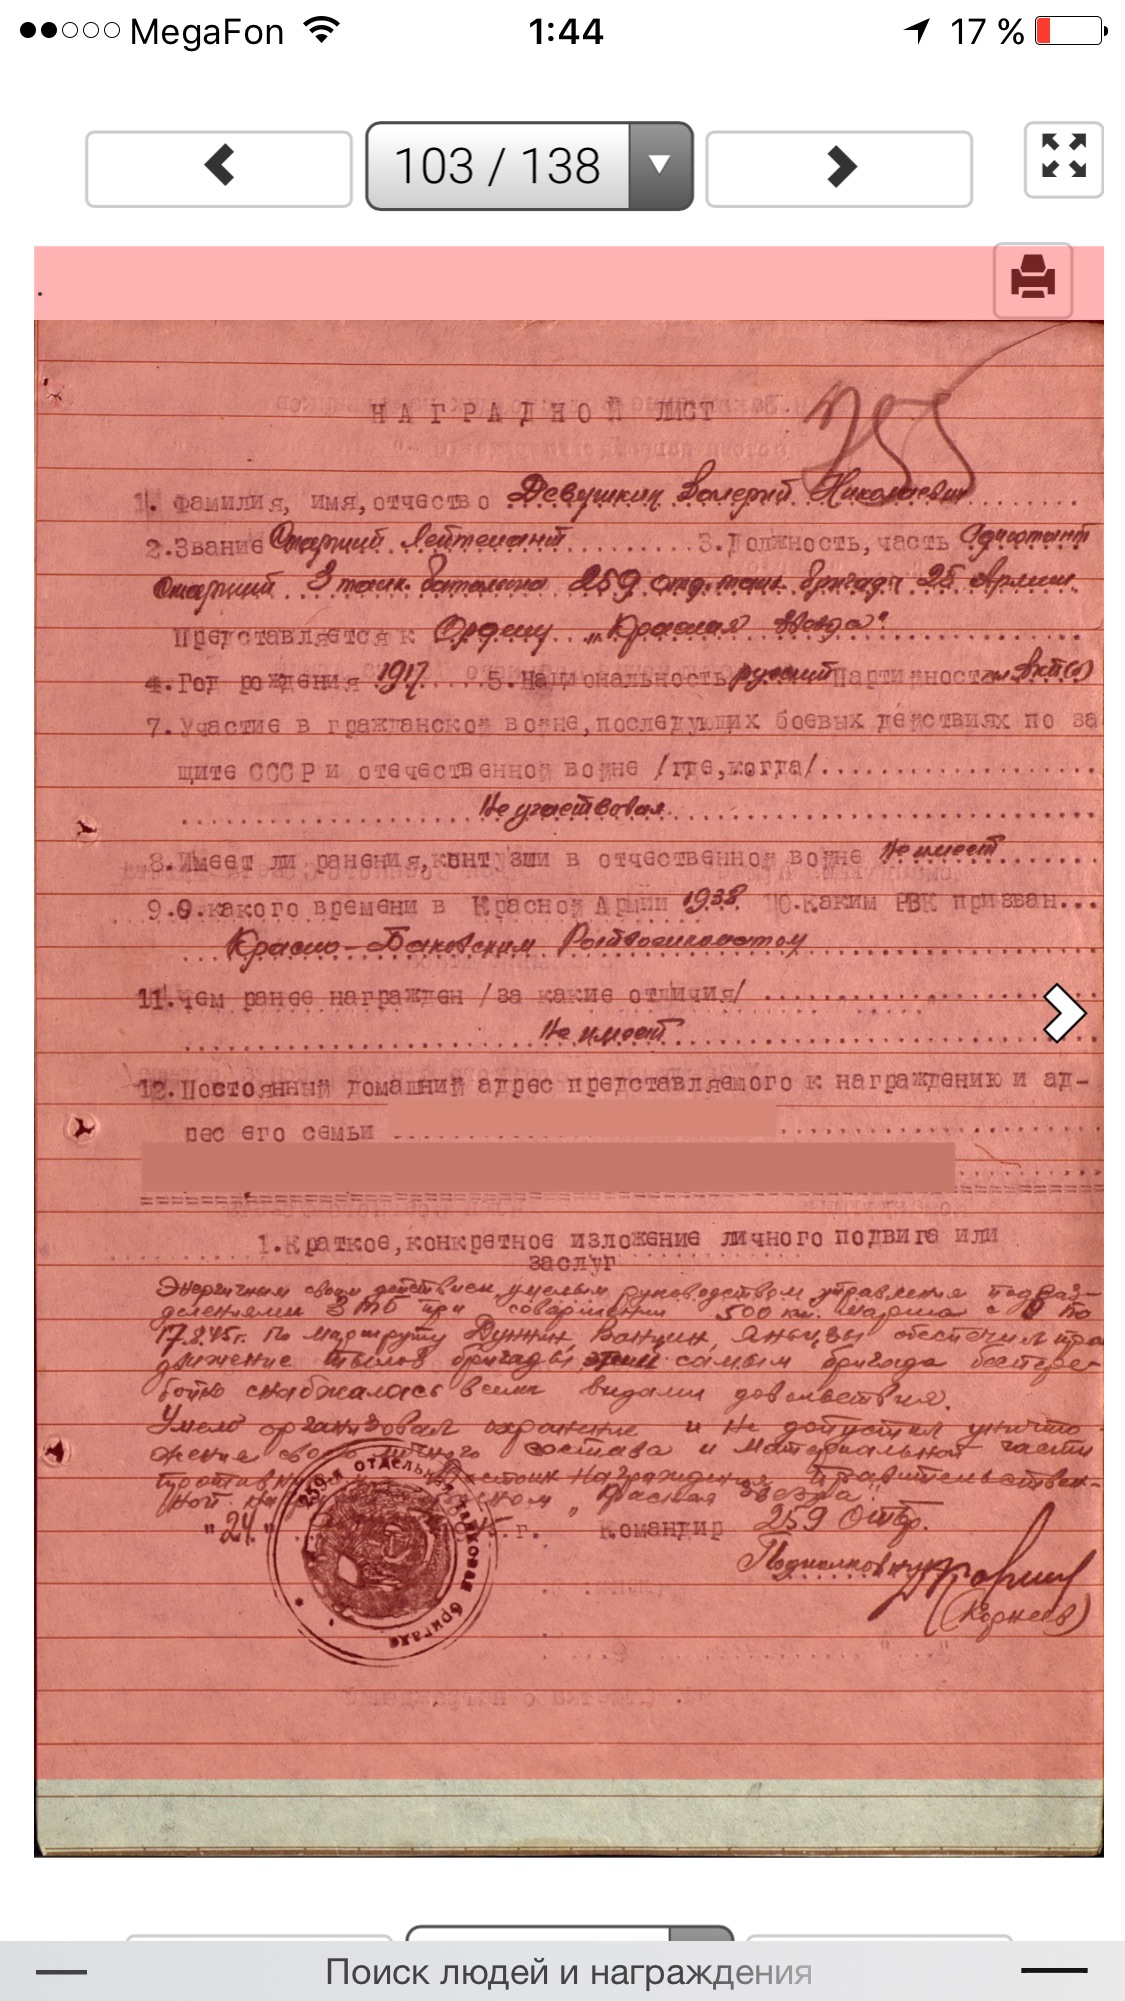 MegaFon 1:44 17 %
103 / 138
НАГРАДНОЙ ЛИСТ
255
1. Фамилия, имя, отчество Девушкин Валерий Николаевич
2. Звание Старший Лейтенант 3. Должность, часть Адъютант
Старший 3 танк. батальона 259 отд. танк. бригады 25 Армии
Представляется к Ордену „Красная Звезда"
4. Год рождения 1917 5. Национальность русский Партийность ВКП(б)
7. Участие в гражданской войне, последующих боевых действиях по за
щите СССР и отечественной войне /где, когда/
Не участвовал
8. Имеет ли ранения, контузии в отчественной войне Не имеет
9. С какого времени в Красной Армии 1938 10. Каким РВК призван...
Красно-Баковским Райвоенкоматом
11. чем ранее награжден /за какие отличия/
Не имеет
12. Постоянный домашний адрес представляемого к награждению и ад-
рес его семьи
1. Краткое, конкретное изложение личного подвига или
заслуг
Энергичным своим действием, умелым руководством управления подраз-
делениями 3 ТБ при совершении 500 км. марша с по
17.8.45г. по маршруту Дуннин, Ванцин, Яньцзы обеспечил про
движение тылов бригады, самым бригада беспере-
бойно снабжалась всеми видами довольствия.
Умело организовал охранение и не допустил уничто-
жение своего личного состава и материальной части
противником. Достоин награждения Правительствен-
ной „Красная Звезда"
"24" г. Командир 259 Отбр.
Подполковник
(Корнеев)
259-я отдельная танковая бригада
Поиск людей и награждения